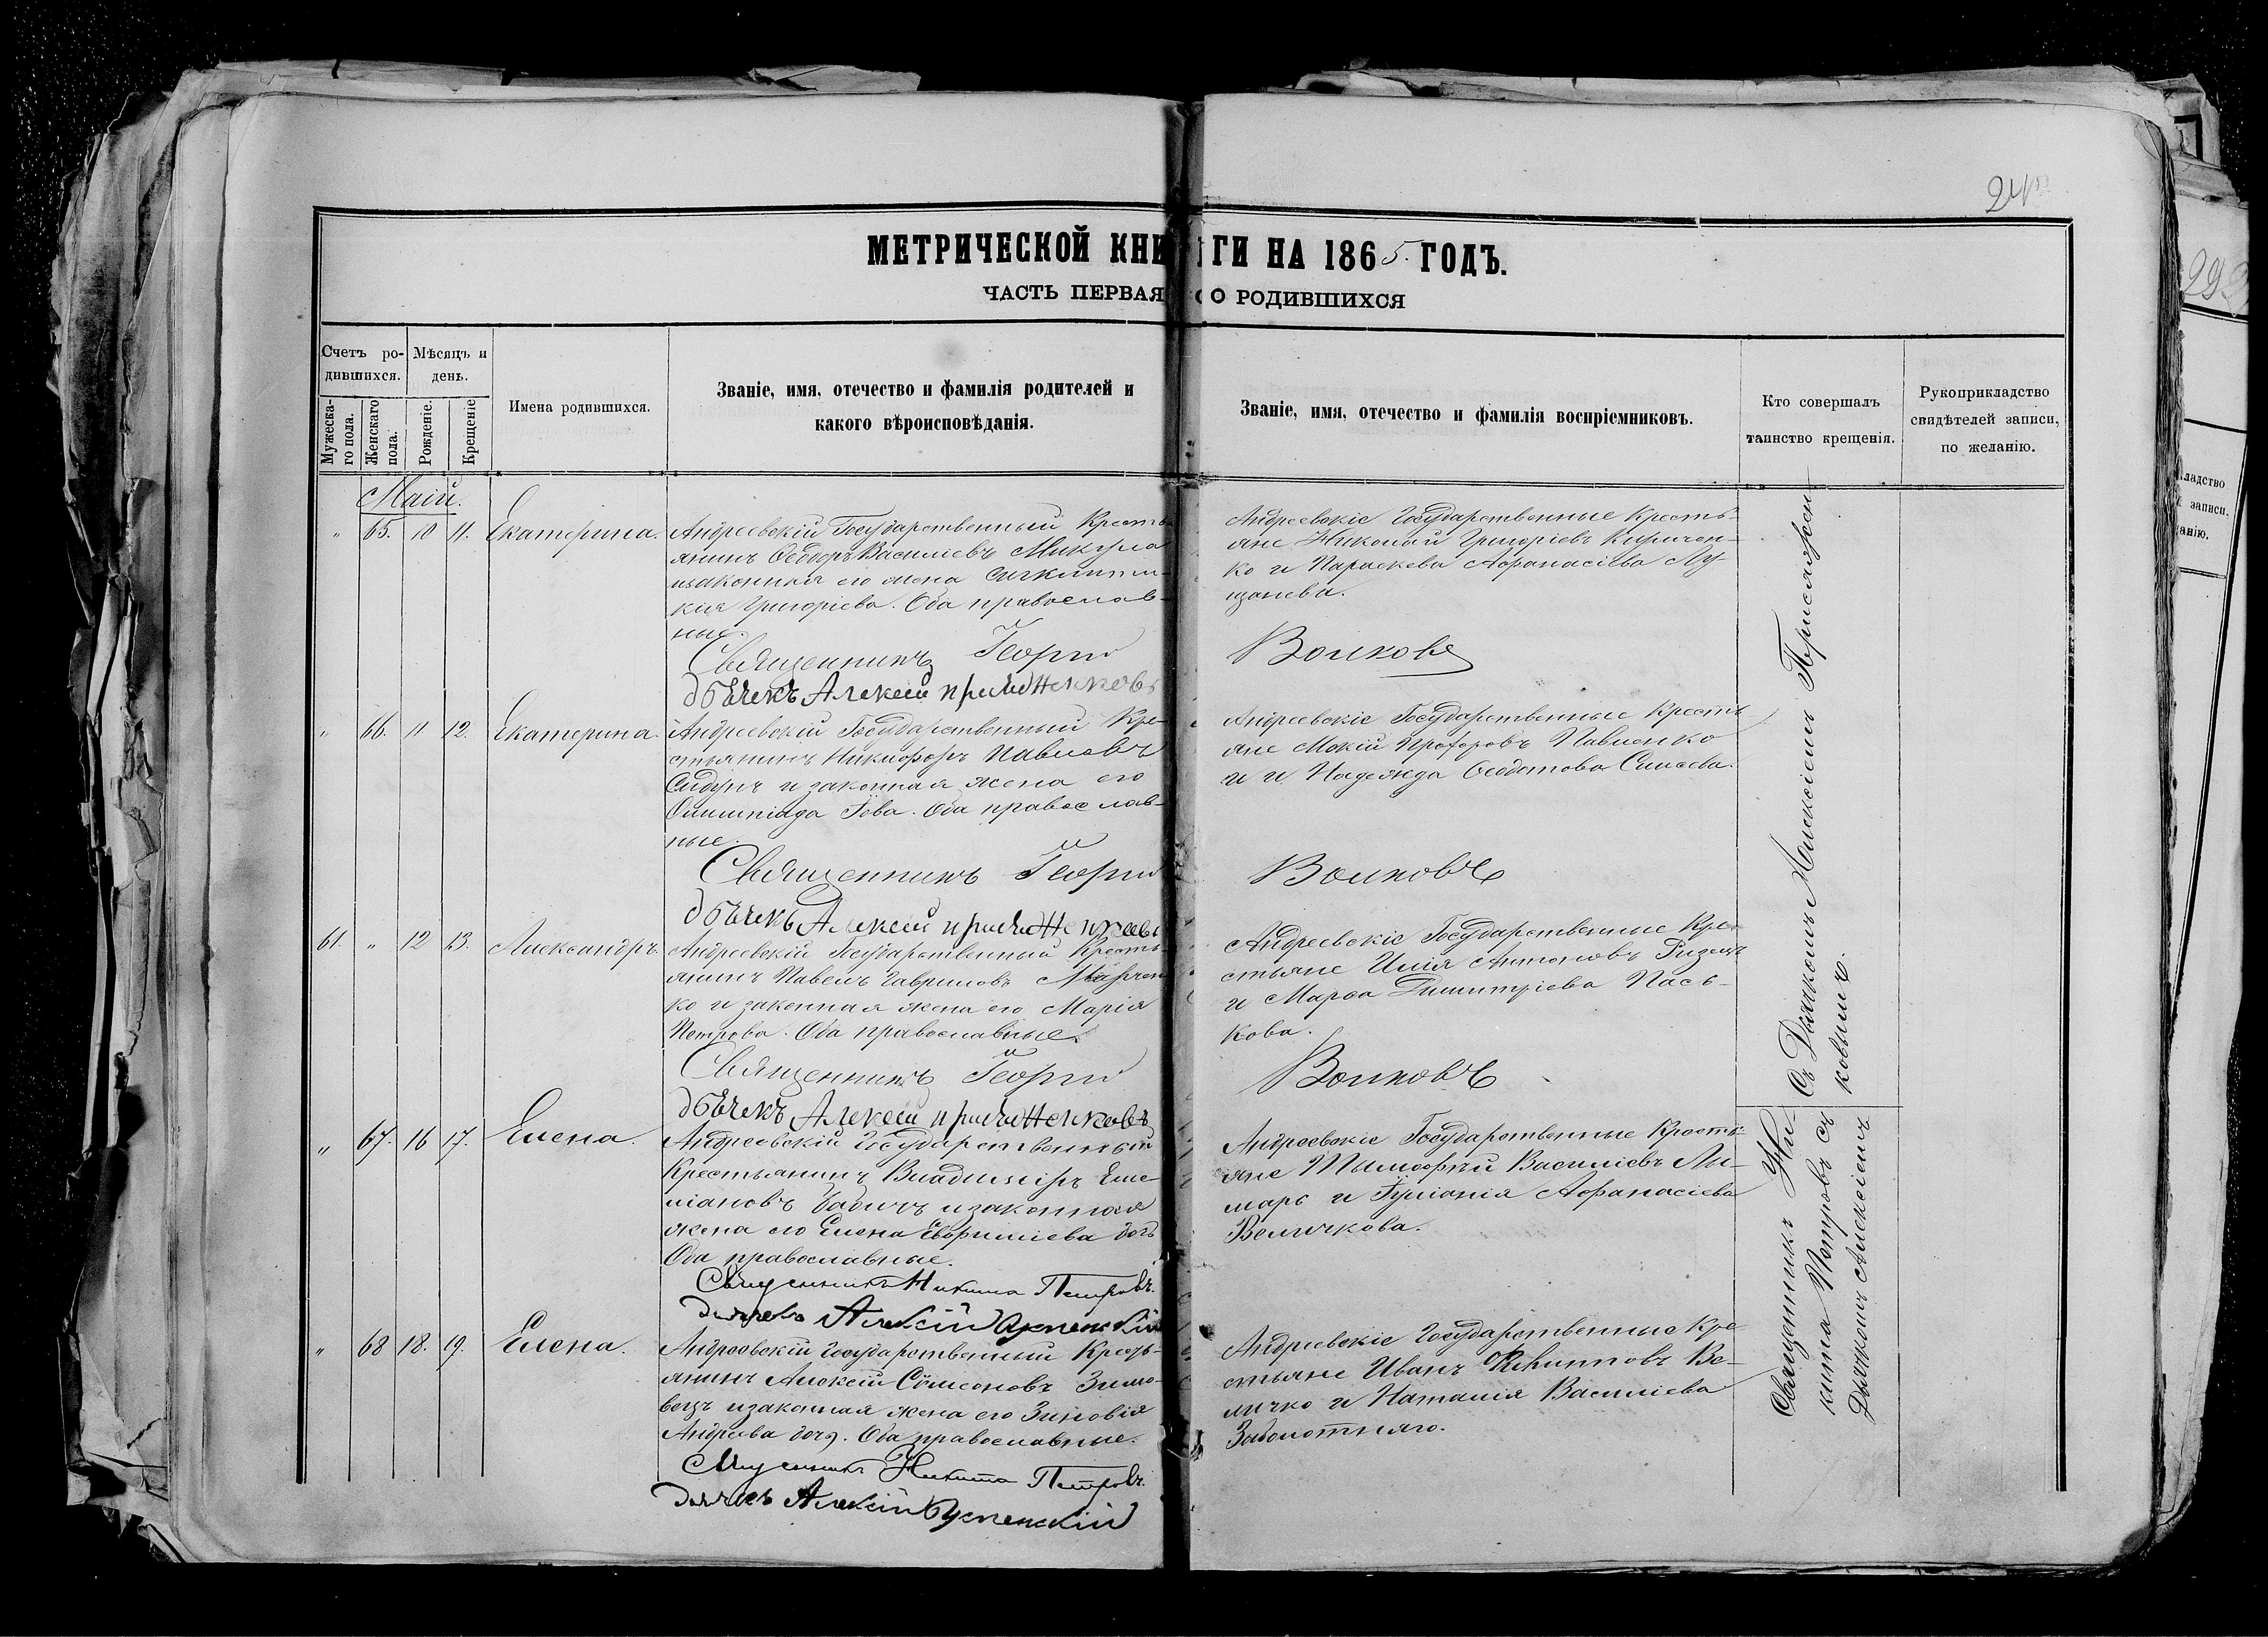 24
МЕТРИЧЕСКОЙ КНИГИ НА 1865. ГОДЪ.
ЧАСТЬ ПЕРВАЯ О РОДИВШИХСЯ
Счетъ ро-
дившихся.
Мѣсяцъ и
день.
Мужеска-
го пола.
Женскаго
пола.
Рожденіе.
Крещеніе
Имена родившихся.
Званіе, имя, отечество и фамилія родителей и
какого вѣроисповѣданія.
Званіе, имя, отечество и фамилія воспріемниковъ.
Кто совершалъ
таинство крещенія.
Рукоприкладство
свидѣтелей записи,
по желанію.
Маій.
" 65. 10 11. Екатерина.
Андреевскій Государственный Кресть
янинъ Ѳеодоръ Василіевъ Микула
изаконная его жена
Григоріева. Оба православ-
ные.
Священникъ Георгій
дьячекъ Алексей
Андреевскіе Государственные Кресть-
яне Николай Григоріевъ Киричен-
ко и Параскева Аѳанасіева Лу-
Волковъ
" 66. 11 12. Екатерина.
Андреевскій Государственный Кре-
стьянинъ Никифоръ Павловъ
Сидунъ и законная жена его
Олимпіада Іова. Оба православ-
ные.
Священникъ Георгій
дьячекъ Алексей
Андреевскіе Государственные Кресть
яне Мокій Прохоровъ Павленко
и и Надежда Ѳеодотова Силаева.
Волковъ
61. " 12 13. Александръ.
Андреевскій Государственный Кресть-
янинъ Павелъ Гавриловъ Марчен
ко и законная жена его Марія
Петрова. Оба православные.
Священникъ Георгій
дьячекъ Алексей
Андреевскіе Государственные Кре-
стьяне Илія Антоновъ
и Марѳа Димитріева Пась-
кова.
Волковъ
" 67. 16 17. Елена.
Андреевскій Государственный
Крестьянинъ Владиміръ Еме
ліановъ Бабичъ изаконная
жена его Елена Евфиміева дочь
Оба православные.
Священникъ Никита Петровъ.
дьячекъ Алексій Успенскій
Андреевскіе Государственные Кресть-
яне Тимофѣй Василіевъ Ли-
марь и Іуліанія Аѳанасіева
Величкова.
" 68 18. 19. Елена.
Андреевскій Государственный Кресть-
янинъ Алексій Сѵмеоновъ Зимо-
вецъ изаконная жена его Зиновія
Андреева дочь. Оба православные.
Священникъ Никита Петровъ.
дьячекъ Алексій Успенскій
Андреевскіе Государственные Кре-
стьяне Иванъ Филипповъ Ве-
личко и Наталія Василіева
Заболотняго.
Съ Дьячкомъ Алексіемъ
ковымъ.
Священникъ Ни-
кита Петровъ съ
Дьячкомъ Алексіемъ
292